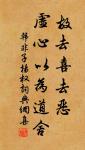 故去喜去惡
虛心以為道舍
韓非子揚權詞典網喜